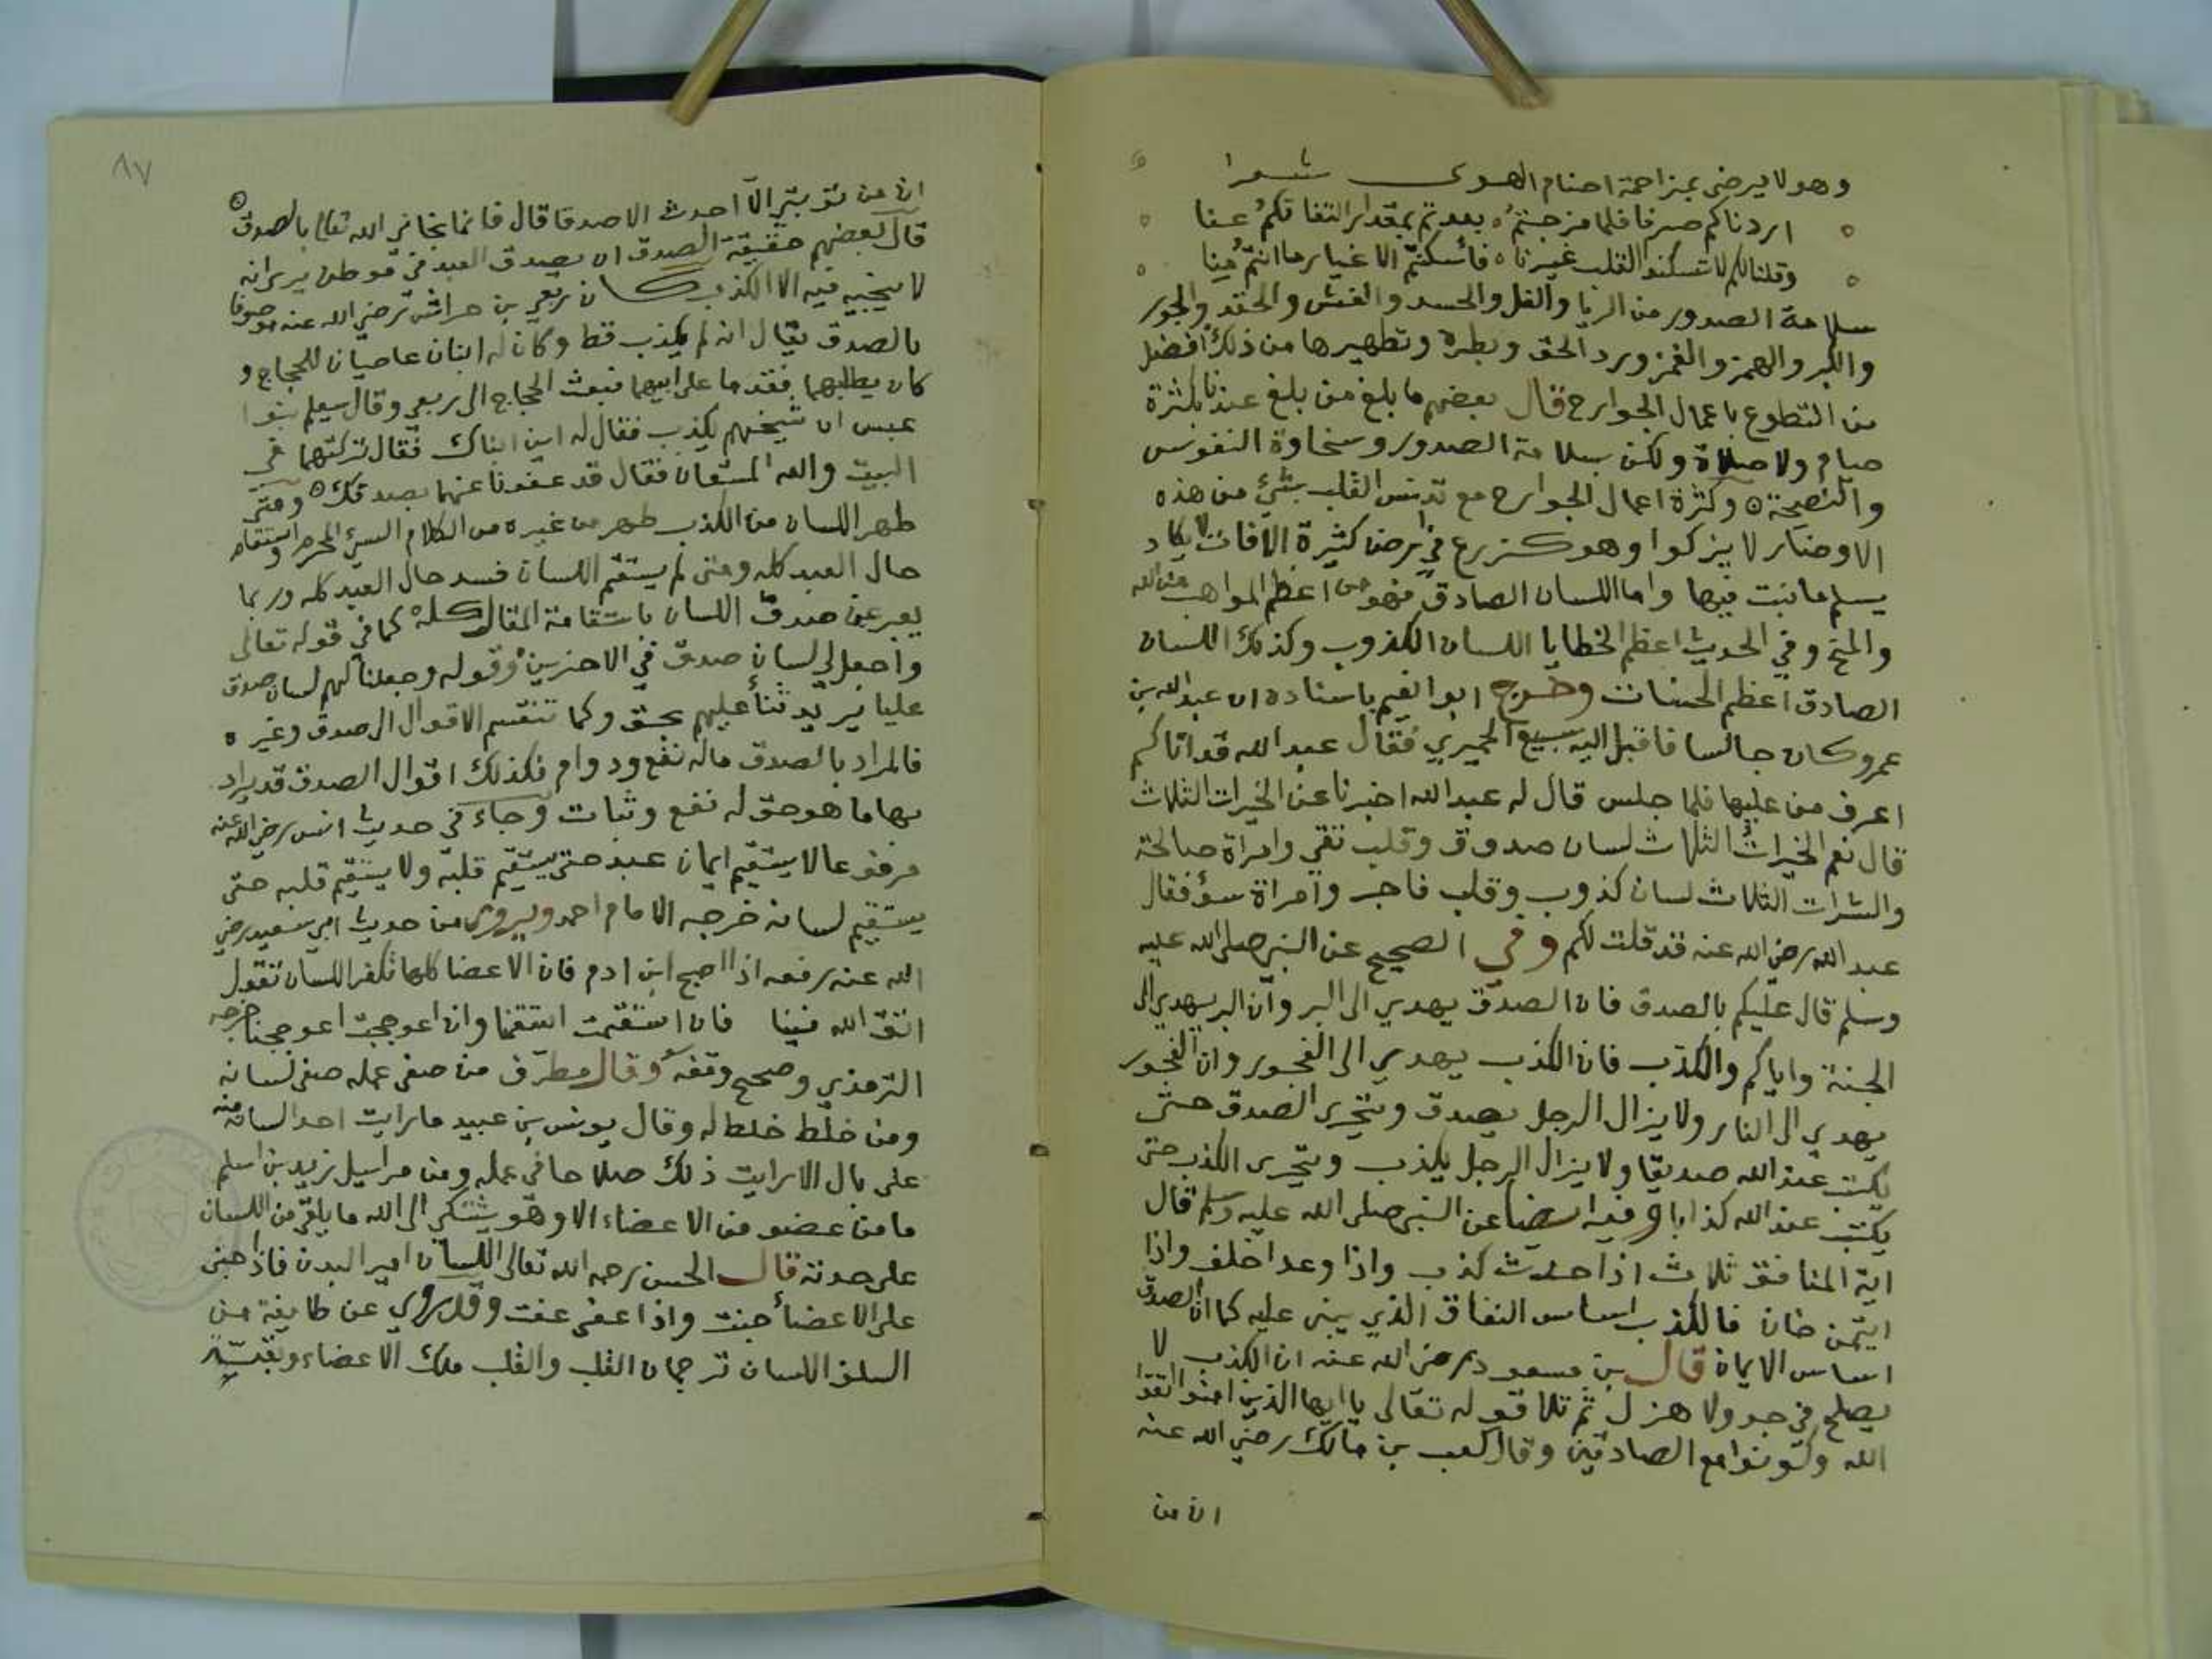 وهو لا يرضى بمزاحمة اصنام الهوى شعرا
اردناكم صرفا فلما مزجتم بعدتم بمقدار التفاتكم عنا
وقلنا لكم لا تسكنوا القلب غيرنا فأسكنتم الاغيار ما انتم منا
سلامة الصدور من الريا والغل والحسد والغش والحقد والجور
والكبر والهمز والغمز ورد الحق وبطره وتطهيرها من ذلك افضل
من التطوع باعمال الجوارح قال بعضهم ما بلغ من بلغ عندنا بكثرة
صيام ولا صلاة ولكن بسلامة الصدور وسخاوة النفوس
والنصيحة وكثرة اعمال الجوارح مع تدنس القلب بشيء من هذه
الاوضار لا يزكوا وهو كزرع في ارض كثيرة الافات لا يكاد
يسلم ما نبت فيها واما اللسان الصادق فهو من اعظم المواهب من الله
والمنح وفي الحديث اعظم الخطايا اللسان الكذوب وكذلك اللسان
الصادق اعظم الحسنات وخرج ابو نعيم باسناده ان عبد الله بن
عمرو كان جالسا فاقبل اليه سبيع الحميري فقال عبد الله قد اتاكم
اعرف من عليها فلما جلس قال له عبد الله اخبرنا عن الخيرات الثلاث
قال نعم الخيرات الثلاث لسان صدوق وقلب تقي وامراة صالحة
والشرات الثلاث لسان كذوب وقلب فاجر وامراة سؤ فقال
عبد الله رضي الله عنه قد قلت لكم وفي الصحيح عن النبي صلى الله عليه
وسلم قال عليكم بالصدق فان الصدق يهدي الى البر وان البر يهدي الى
الجنة واياكم والكذب فان الكذب يهدي الى الفجور وان الفجور
يهدي الى النار ولا يزال الرجل يصدق ويتحرى الصدق حتى
يكتب عند الله صديقا ولا يزال الرجل يكذب ويتحرى الكذب حتى
يكتب عند الله كذابا وفيه ايضا عن النبي صلى الله عليه وسلم قال
اية المنافق ثلاث اذا حدث كذب واذا وعد اخلف واذا
ايتمن خان فالكذب اساس النفاق الذي يبنى عليه كما ان الصدق
اساس الايمان قال بن مسعود رضي الله عنه ان الكذب لا
يصلح في جد ولا هزل ثم تلا قوله تعالى يا ايها الذين امنوا اتقوا
الله وكونوا مع الصادقين وقال كعب بن مالك رضي الله عنه
ان من
٨٧
ان من توبتي الا احدث الا صدقا قال فانما نجاني الله تعالى بالصدق
قال بعضهم حقيقة الصدق ان يصدق العبد في موطن يرى انه
لا ينجيه فيه الا الكذب كان ربعي بن حراش رضي الله عنه موصوفا
بالصدق يقال انه لم يكذب قط وكان له ابنان عاصيان للحجاج و
كان يطلبهما فقدما على ابيهما فبعث الحجاج الى ربعي وقال سيعلم بنوا
عبس ان شيخهم يكذب فقال له اين ابناك فقال تركتهما في
البيت والله المستعان فقال قد عفونا عنهما بصدقك ومتى
طهر اللسان من الكذب طهر من غيره من الكلام السيئ المحرم واستقام
حال العبد كله ومتى لم يستقم اللسان فسد حال العبد كله وربما
يعبر عن صدق اللسان باستقامة المقال كله كما في قوله تعالى
واجعل لي لسان صدق في الاخرين وقوله وجعلنا لهم لسان صدق
عليا يريد ثنأ عليهم بحق وكما تنقسم الاقوال الى صدق وغيره
فالمراد بالصدق ماله نفع ودوام فكذلك اقوال الصدق قد يراد
بها ما هو حق له نفع وثبات وجاء في حديث انس رضي الله عنه
مرفوعا لا يستقيم ايمان عبد حتى يستقيم قلبه ولا يستقيم قلبه حتى
يستقيم لسانه خرجه الامام احمد ويروى من حديث ابي سعيد رضي
الله عنه رفعه اذا اصبح ابن ادم فان الاعضا كلها تكفر اللسان تقول
اتق الله فينا فان استقمت استقمنا وان اعوججت اعوججنا خرجه
الترمذي وصحح وقفه وقال مطرف من صفى عمله صفى لسانه
ومن خلط خلط له وقال يونس بن عبيد ما رايت احد لسانه منه
على بال الا رايت ذلك صلاحا في عمله ومن مراسيل زيد بن اسلم
ما من عضو من الاعضاء الا وهو يشتكي الى الله ما يلقى من اللسان
على حدته قال الحسن رحمه الله تعالى اللسان امير البدن فاذا جنى
على الاعضأ جنت واذا عف عفت وقد روي عن طايفة من
السلف اللسان ترجمان القلب والقلب ملك الاعضاء وبقيته